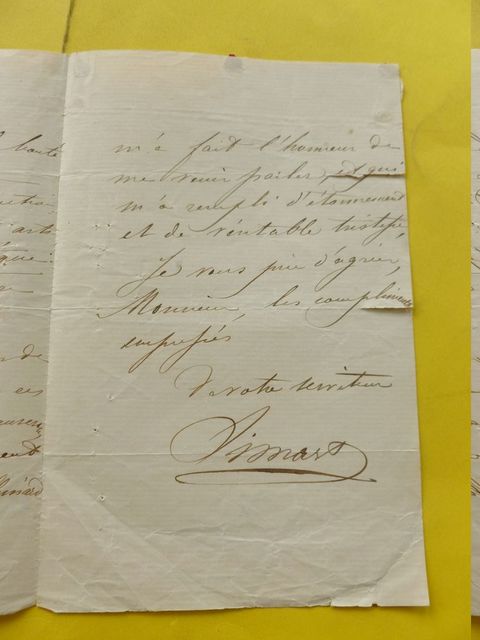 m'a fait l'honneur de
me venir parler, et qui
m'a rempli d'étonnement
et de véritable tristesse,
Je vous prie d'agréer,
Monsieur, les compliments
empressés
De votre serviteur
Simart
bonté
de
ces